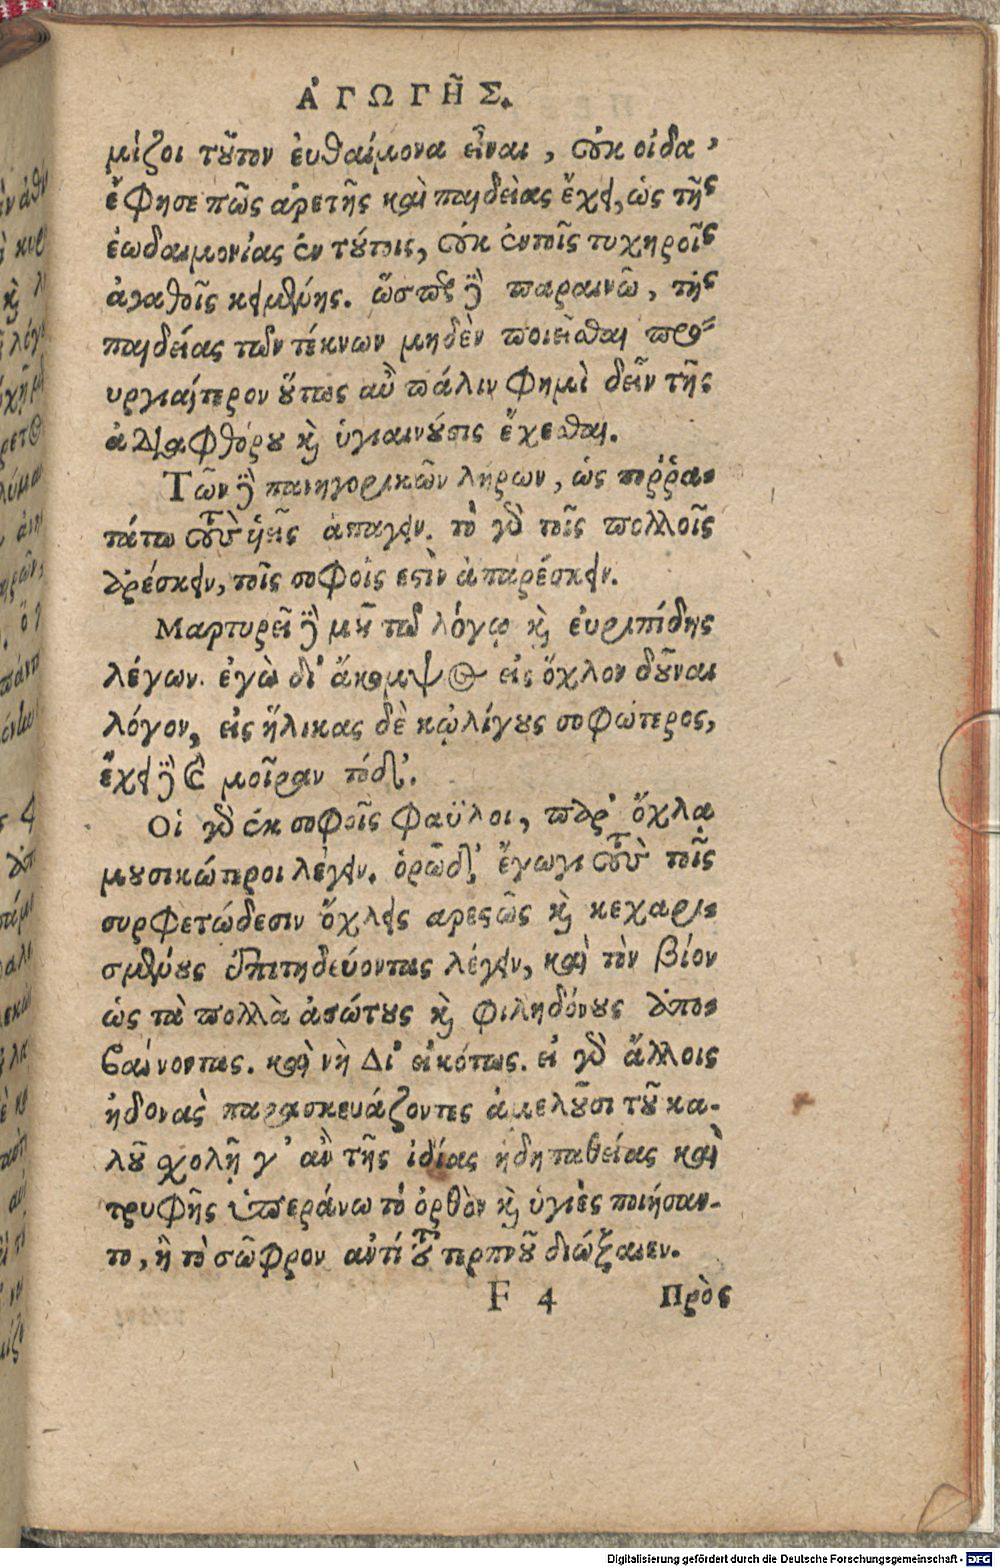 ἈΓΩΓΗ͂Σ.
μίζοι τȣ͂τον ἐυθαίμονα εἶναι, ȣ̓κ οἶδα,
ἔφησε πῶς ἀρετῆς καὶ παιδείας ἔχει, ὡς τῆς
ἐυδαιμονίας ἐν τȣ́τοις, ȣ̓κ ἐν τοῖς τυχηροῖς
ἀγαθοῖς κειμένης. ὥσπερ δὲ παραινῶ, τῆς
παιδείας τῶν τέκνων μηδὲν ποιεῖσθαι προ-
υργιαίτερον ȣ̔́τως αὖ πάλιν φημὶ δεῖν τῆς
ἀδιαφθόρȣ καὶ ὑγιαινȣ́σις ἔχεσθαι.
Τῶν δὲ πανηγορικῶν λήρων, ὡς πορῤῥω-
τάτω τȣ̀ς ὑεῖς ἀπαγειν. τὸ γὰρ τοῖς πολλοῖς
ἀρέσκειν, τοῖς σοφοίς εστὶν ἀπαρέσκειν.
Μαρτυρεῖ δέ μȣ τῷ λόγῳ καὶ ἐυριπίδης
λέγων. ἐγὼ δ' ἄκομψος εἰς ὄχλον δȣ͂ναι
λόγον, εἰς ἥλικας δὲ κᾠλίγȣς σοφώτερος,
ἔχει δὲ καὶ μοῖραν τόδ'.
Οἱ γὰρ ἐκ σοφοῖς φαῦλοι, παρ' ὄχλῳ
μȣσικώτεροι λέγειν. ὁρῶ δ' ἔγωγε τȣ̀ς τοῖς
συρφετώδεσιν ὄχλοις αρεστῶς καὶ κεχαρι-
σμένως ἐπιτηδεύοντας λέγειν, καὶ τὸν βίον
ὡς τὰ πολλὰ ἀσώτȣς καὶ φιληδόνȣς ἀπο-
βαίνοντας. καὶ νὴ Δί' εἰκότως. εἰ γὰρ ἄλλοις
ἡδονὰς παρασκευάζοντες ἀμελȣ͂σι τȣ͂ κα-
λȣ͂ σχολῇ γ' ἂν τῆς ἰδίας ἡδηπαθείας καὶ
τρυφῆς ὑπεράνω τὸ ὀρθὸν καὶ ὑγιὲς ποιήσαν-
το, ἢ τὸ σῶφρον αντί τȣ͂ τερπνȣ͂ διώξαιεν.
F 4 Πρὸς
Digitalisierung gefördert durch die Deutsche Forschungsgemeinschaft - DFG